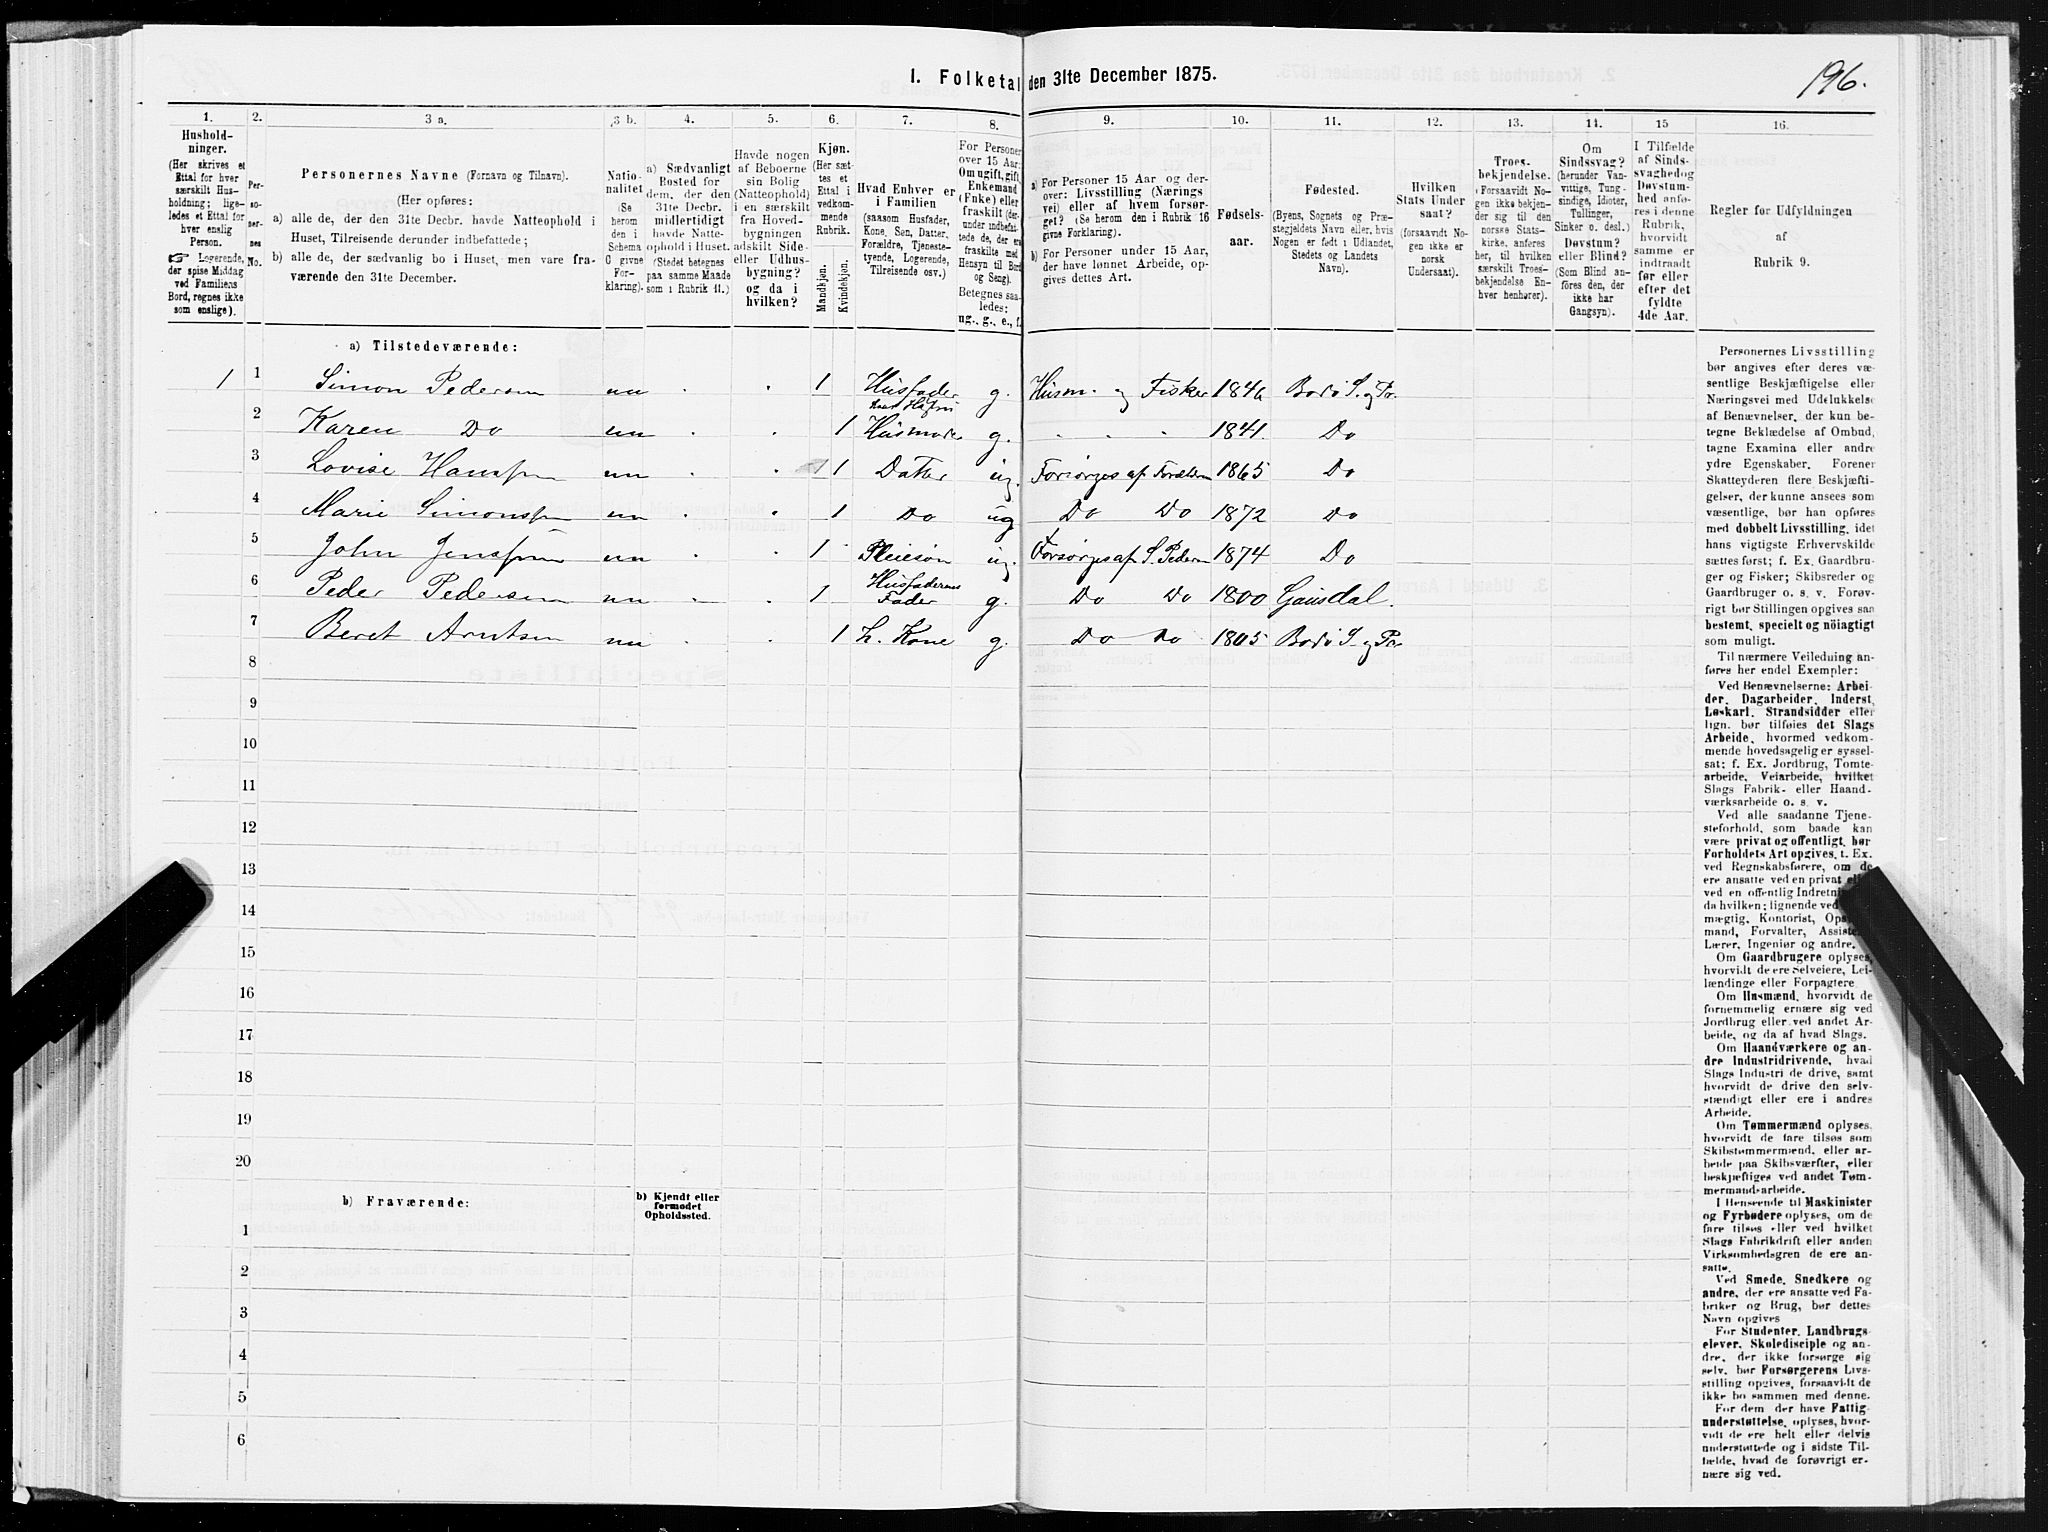 196.
I. Folketal den 31te December 1875.
1. 2. 3 a. 3 b. 4. 5. 6. 7. 8. 9. 10. 11. 12. 13. 14. 15 16.
Hushold-
ninger.
(Her skrives et
Ettal for hver
særskilt Hus-
holdning; lige-
ledes et Ettal for
hver enslig
Person.
☞ Logerende,
der spise Middag
ved Familiens
Bord, regnes ikke
som enslige).
Per-
so-
nes
No.
Personernes Navne (Fornavn og Tilnavn).
(Her opføres:
a) alle de, der den 31te Decbr. havde Natteophold i
Huset, Tilreisende derunder indbefattede;
b) alle de, der sædvanlig bo i Huset, men vare fra-
værende den 31te December.
Natio-
nalitet
(Se
herom
den i
Schema
C givne
For-
klaring).
a) Sædvanligt
Bosted for
dem, der den
31te Decbr.
midlertidigt
havde Natte-
ophold i Huset.
(Stedet betegnes
paa samme Maade
som i Rubrik 11.)
Havde nogen
af Beboerne
sin Bolig
(Natteophold)
i en særskilt
fra Hoved-
bygningen
adskilt Side-
eller Udhus-
bygning?
og da i
hvilken?
Kjøn.
(Her sæt-
tes et
Ettal i
vedkom-
mende
Rubrik.
Mandkjøn.
Kvindekjøn.
Hvad Enhver er
i Familien
(saasom Husfader,
Kone, Søn, Datter,
Forældre, Tjeneste-
tyende, Logerende,
Tilreisende osv.)
For Personer
over 15 Aar:
Om ugift, gift,
Enkemand
(Enke) eller
fraskilt (der-
under indbefat-
tede de, der ere
fraskilte med
Hensyn til Bord
og Seng).
Betegnes saa-
ledes:
ug., g., e., f.
a) For Personer 15 Aar og der-
over: Livsstilling (Nærings-
vei) eller af hvem forsør-
get? (Se herom den i Rubrik 16
givne Forklaring).
b) For Personer under 15 Aar,
der have lønnet Arbeide, op-
gives dettes Art.
Fødsels-
aar.
Fødested.
(Byens, Sognets og Præ-
stegjeldets Navn eller, hvis
Nogen er født i Udlandet,
Stedets og Landets
Navn).
Hvilken
Stats Under
saat?
(forsaavidt No-
gen ikke er
norsk
Undersaat).
Troes-
bekjendelse.
(Forsaavidt No-
gen ikke bekjen-
der sig til den
norske Stats-
kirke, anføres
her, til hvilken
særskilt Troes-
bekjendelse En-
hver henhører).
Om
Sindssvag?
(herunder Van-
vittige, Tung-
sindige, Idioter,
Tullinger,
Sinker o. desl.)
Døvstum?
eller Blind?
(Som Blind an-
føres den, der
ikke har
Gangsyn).
I Tilfælde
af Sinds-
svaghed og
Døvstum-
hed anfø-
res i denne
Rubrik,
hvorvidt
samme er
indtraadt
før eller
efter det
fyldte
4de Aar.
Regler for Udfyldningen
af
Rubrik 9.
a) Tilstedeværende:
1 1 Simon Pedersen nn 1 Husfader g. Husm. og Fisker 1846 Bodø S. og Pr.
2 Karen Do nn 1 Husmoder g. 1841. Do
3 Lovise Hanssen nn 1 Datter ug. Forsørges af Forældren 1865 Do
4 Marie Simonssen nn 1 Do ug Do Do 1872 Do
5 John Jenssen nn 1 Pleiesøn ug. Forsørges af S. Pedersen 1874 Do
6 Peder Pedersen nn 1 Husfaderens Fader g. Do Do 1800 Gausdal.
7 Beret Arntsen nn 1 h. Kone g. Do Do 1805 Bodø S. og Pr
8
9
10
11
12
13
14
15
16
17
18
19
20
b) Fraværende:
b) Kjendt eller
formodet
Opholdssted.
1
2
3
4
5
6
Personernes Livsstilling
bør angives efter deres væ-
sentlige Beskjæftigelse eller
Næringsvei med Udelukkelse
af Benævnelser, der kun be-
tegne Beklædelse af Ombud,
tagne Examina eller andre
ydre Egenskaber. Forener
Skatteyderen flere Beskjæfti-
gelser, der kunne ansees som
væsentlige, bør han opføres
med dobbelt Livsstilling, idet
hans vigtigste Erhvervskilde
sættes først; f. Ex. Gaardbru-
ger og Fisker; Skibsreder og
Gaardbruger o. s. v. Forøv-
rigt bør Stillingen opgives saa
bestemt, specielt og nøiagtigt
som muligt.
Til nærmere Veiledning an-
føres her endel Exempler:
Ved Benævnelserne: Arbei-
der, Dagarbeider, Inderst,
Løskarl, Strandsidder eller
lign. bør tilføies det Slags
Arbeide, hvormed vedkom-
mende hovedsagelig er syssel-
sat; f. Ex. Jordbrug, Tomte-
arbeide, Veiarbeide, hvilket
Slags Fabrik- eller Haand-
værksarbeide o. s. v.
Ved alle saadanne Tjene-
steforhold, som baade kan
være privat og offentligt, bør
Forholdets Art opgives, f. Ex.
ved Regnskabsførere, om de
ere ansatte ved en privat
ved en offentlig
da hvilken; lignende ved
mægtig, Kontorist,
mand, Forvalter,
Lærer, Ingeniør og andre.
Om Gaardbrugere oplyses,
hvorvidt de ere Selveiere, Lei-
lændinge eller Forpagtere.
Om Husmænd, hvorvidt de
fornemmelig ernære sig ved
Jordbrug eller ved andet Ar-
beide, og da af hvad Slags.
Om Haandværkere og an-
dre Industridrivende, hvad
Slags Industri de drive, samt
hvorvidt de drive den selv-
stændigt eller ere i andres
Arbeide.
Om Tømmermænd oplyses,
hvorvidt de fare tilsøs som
Skibstømmermænd, eller ar-
beide paa Skibsværfter, eller
beskjæftiges ved andet Tøm-
mermandsarbeide.
I Henseende til Maskinister
og Fyrbødere oplyses, om de
fare tilsøs eller ved hvilket
Slags Fabrikdrift eller anden
Virksomhedsgren de ere an-
satte.
Ved Smede, Snedkere og
andre, der ere ansatte ved Fa-
briker og Brug, bør dettes
Navn opgives
For Studenter, Landbrugs-
elever, Skoledisciple og an-
dre, der ikke forsørge sig
selv, bør Forsørgerens Livs-
stilling opgives, forsaavidt de
ikke bo sammen med denne.
For dem, der have Fattig-
understøttelse, oplyses, hvor-
vidt de ere helt eller delvis
understøttede og i sidste Til-
fælde, hvad de forøvrigt er-
nære sig ved.